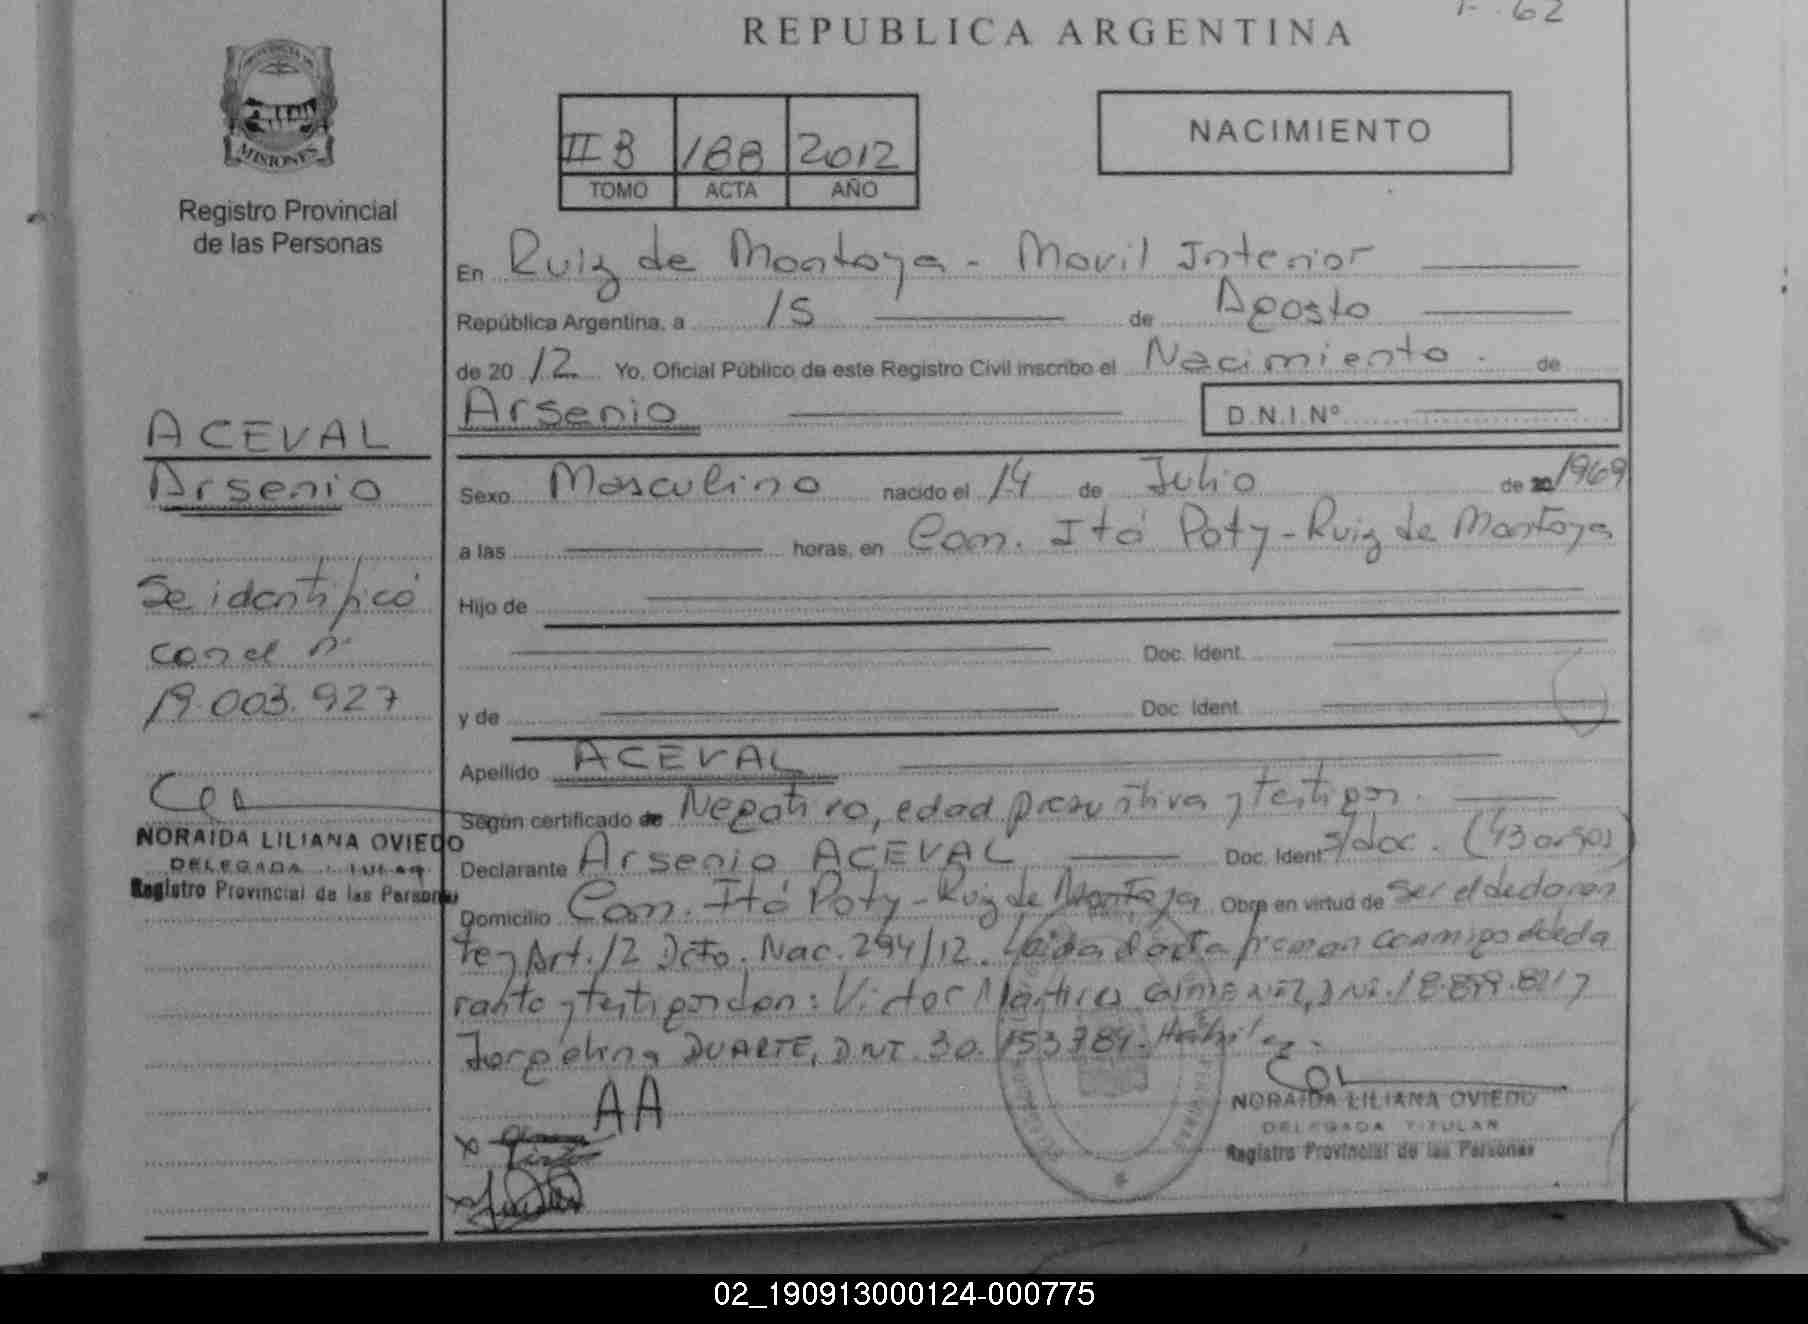 REPUBLICA ARGENTINA
F. 62
MISIONES
Registro Provincial
de las Personas
II B 188 2012
TOMO ACTA AÑO
NACIMIENTO
En Ruiz de Montoya - Movil Interior
República Argentina, a 15 de Agosto
de 20 12 Yo, Oficial Público de este Registro Civil inscribo el Nacimiento. de
Arsenio D.N.I.Nº
ACEVAL
Arsenio
Se identificó
con el nº
19.003.927
NORAIDA LILIANA OVIEDO
DELEGADA TITULAR
Registro Provincial de las Personas
Sexo Masculino nacido el 14 de Julio de 20 1969
a las horas, en Com. Itá Poty - Ruiz de Montoya
Hijo de
Doc. Ident.
y de Doc. Ident.
Apellido ACEVAL
Según certificado de Negativo, edad presuntiva y testigos.
Declarante Arsenio ACEVAL Doc. Ident. s/doc. (43 años)
Domicilio Com. Itá Poty - Ruiz de Montoya Obra en virtud de ser el declaran
te y Art. 12 Dcto. Nac. 294/12. Leida el acta firman conmigo el decla
rante y testigos don: Victor Mártires GIMENEZ, DNI. 18.899.821 y
Jorgelina DUARTE, DNI. 30.153.784. Hábiles.
AA
NORAIDA LILIANA OVIEDO
DELEGADA TITULAR
Registro Provincial de las Personas
02_190913000124-000775